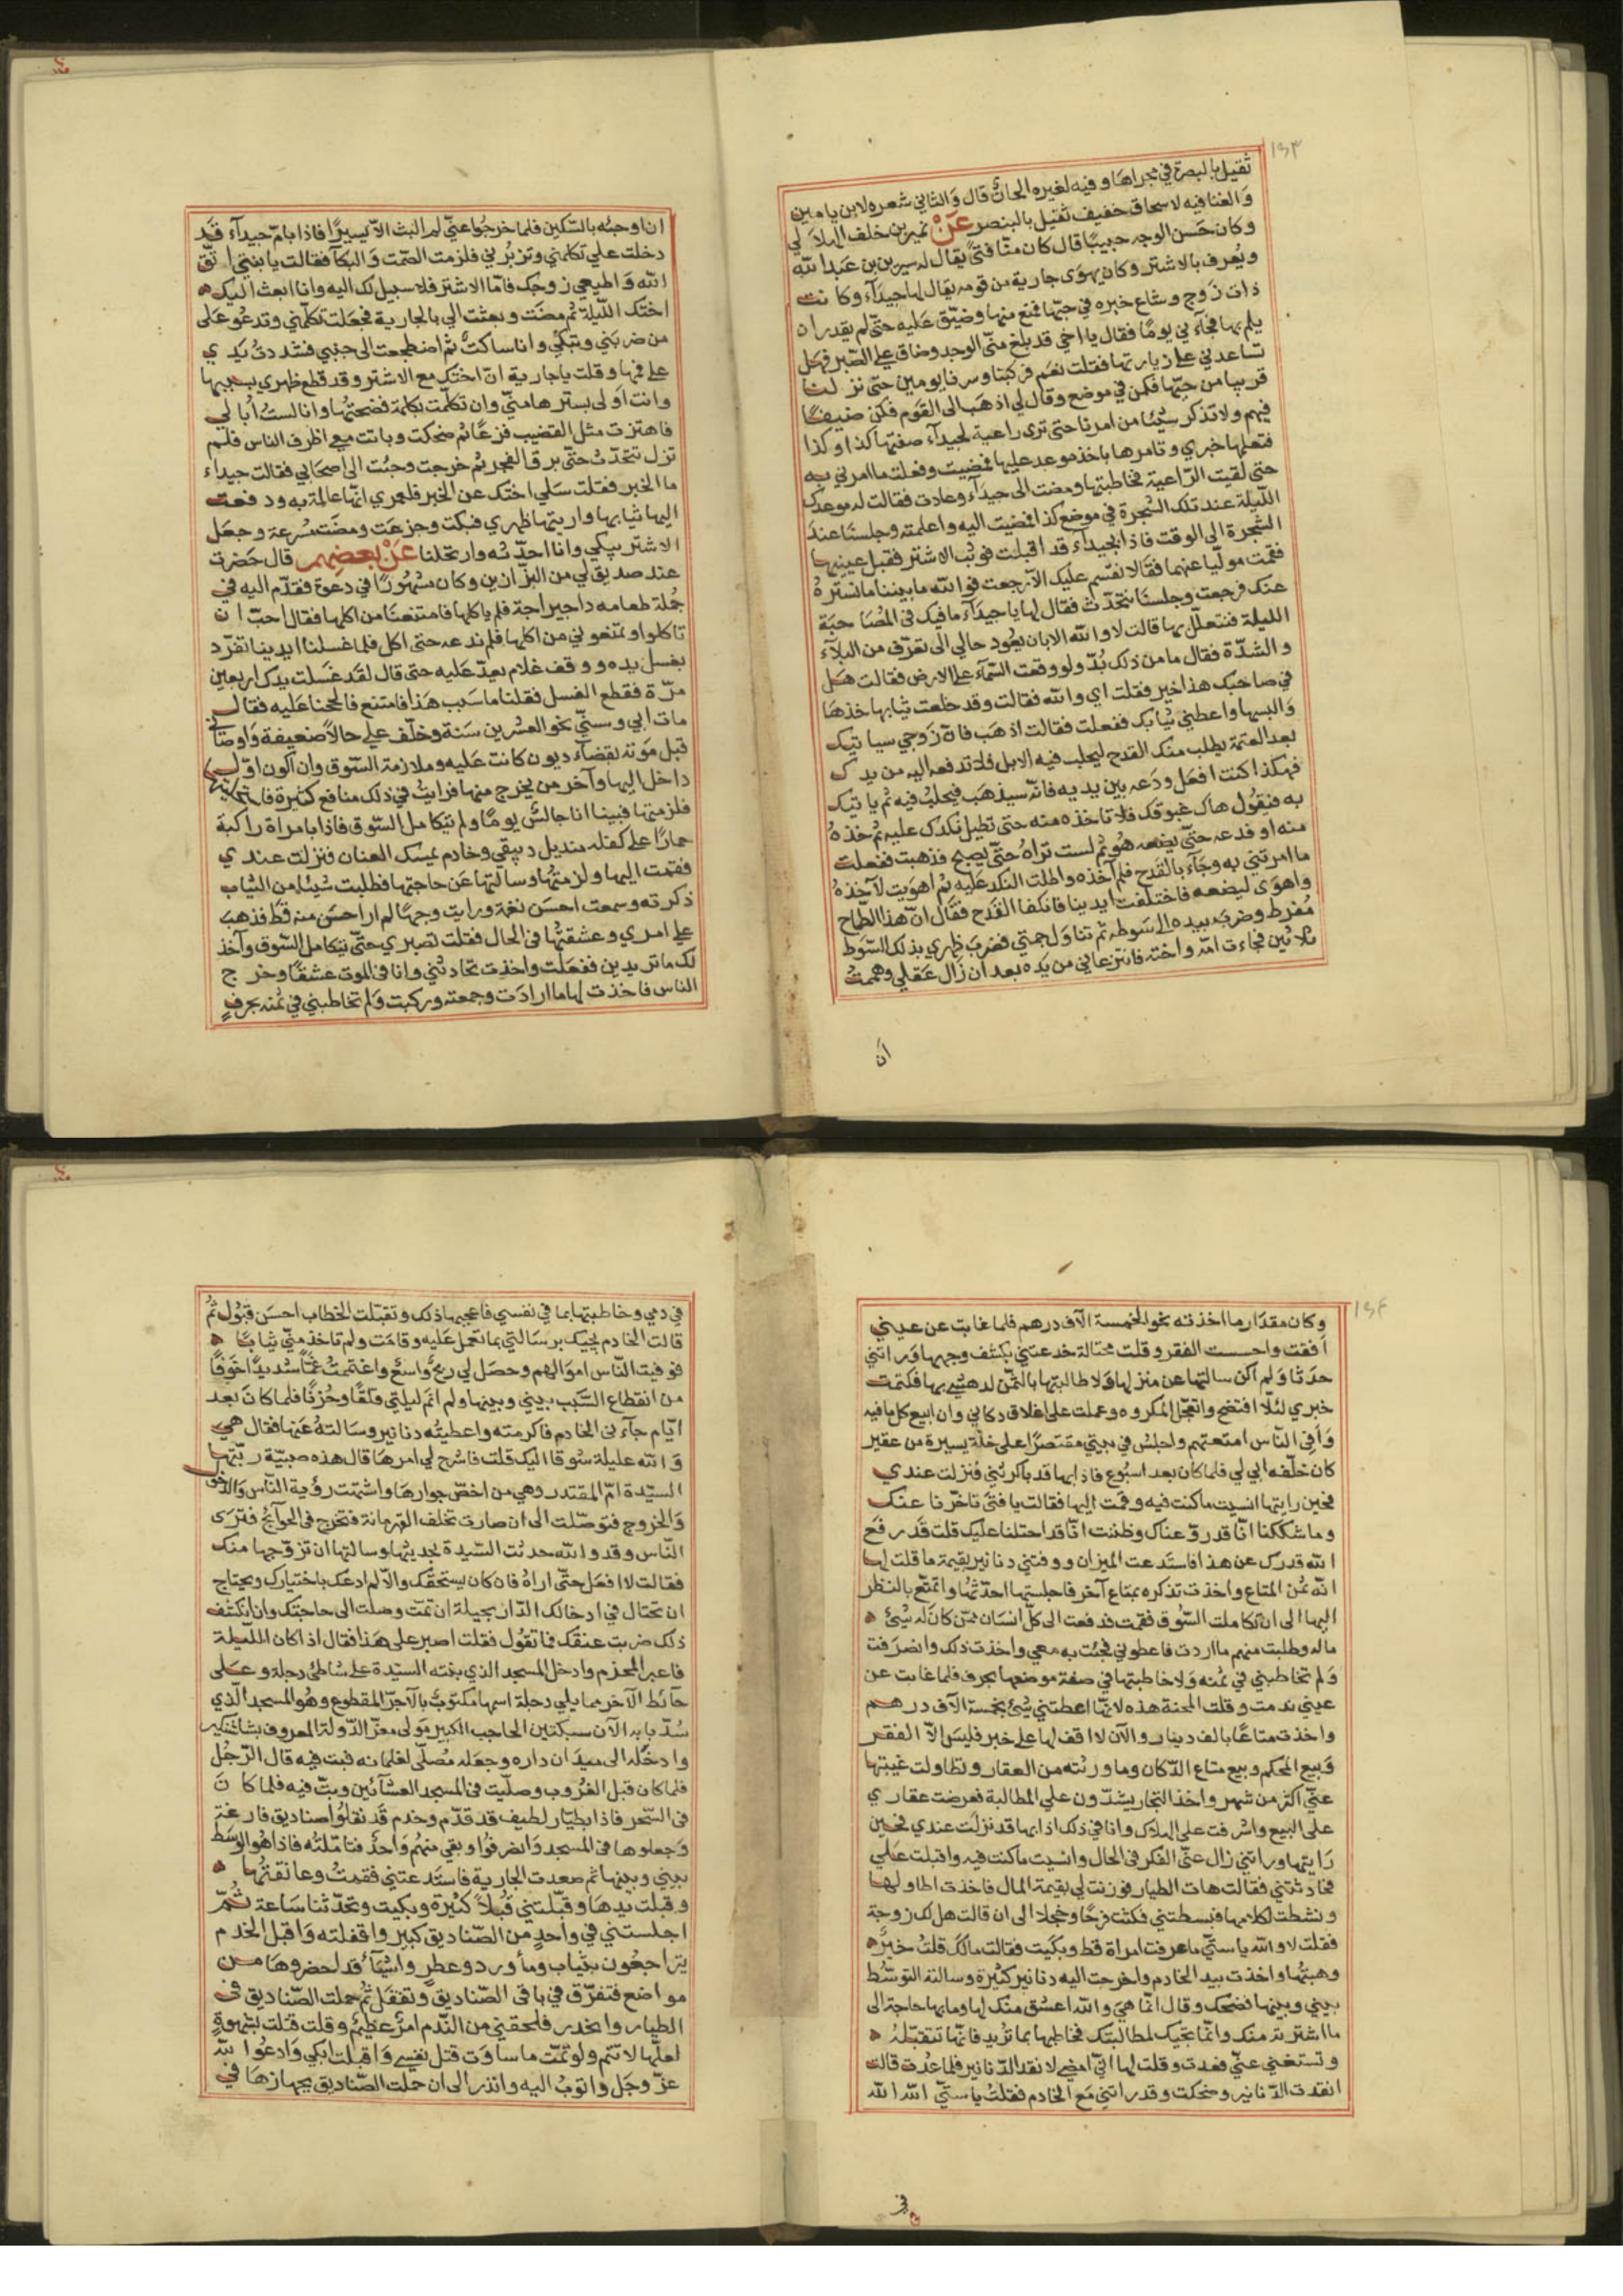 ١٥٣
ثقيل بالبصرة في مجراها وفيه لغيره الحان قال والثاني شعره لابن يامين
والغنا فيه لاسحاق خفيف ثقيل بالبنصر عن نمير بن خلف الهلالي
وكان حسن الوجه حبيبًا قال كان منا فتىً يقال له بن عبد الله
ويعرف بالاشتر وكان يهوى جارية من قومه يقال لها جيداء وكانت
ذات زوج وشاع خبره في حبها فمنع منها وضيّق عليه حتى لم يقدر ان
يلم بها فجاءني يومًا فقال يا اخي قد بلغ منّي الوجد وضاق علي الصبر فهل
تساعدني على زيارتها فقلت نعم فركبنا وسرنا يومين حتى نزلنا
قريبا من حيّها فكمن في موضع وقال لي اذهب الى القوم فكن ضيفًا
فيهم ولا تذكر شيئا من امرنا حتى ترى راعية لجيداء صفتها كذا وكذا
فتعلمها خبري وتامرها باخذ موعد عليها فمضيت وفعلت ما امرني به
حتى لقيت الراعية فخاطبتها ومضت الى جيداء وعادت فقالت له موعدك
الليلة عند تلك الشجرة في موضع كذا فمضيت اليه واعلمته وجلسنا عند
الشجرة الى الوقت فاذا بجيداء قد اقبلت فوثب الاشتر فقبل عينيها
فقمت موليا عنهما فقالا نقسم عليك الا رجعت فوالله ما بيننا ما نستره
عنك فرجعت وجلسنا نتحدث فقال لها يا جيداء ما فيك في المصاحبة
الليلة فنتعلل بها قالت لا والله الا بان يعود حالي الى ما تعرف من البلاء
والشدّة فقال ما من ذلك بدّ ولو وقعت السماء على الارض فقالت هل
في صاحبك هذا خير فقلت اي والله فقالت وقد خلعت ثيابها خذها
والبسها واعطني ثيابك ففعلت فقالت اذهب فان زوجي سياتيك
بعد العتمة يطلب منك القدح ليحلب فيه الابل فلا تدفعه اليه من يدك
فهكذا كنت افعل ودعه بين يديه فانه سيذهب فيحلب فيه ثم ياتيك
به فيقول هاك غبوقك فلا تاخذه منه حتى تطيل نكدك عليه ثم خذه
منه او فدعه حتى يضعه هو ثم لست تراه حتى يصبح فذهبت ففعلت
ما امرتني به وجاء بالقدح فلم آخذه واطلت النكد عليه ثم اهويت لآخذه
واهوى ليضعه فاختلفت ايدينا فانكفا القدح فقال ان هذا الطماح
مفرط وضرب بيده الى سوطه ثم تناول جمتي فضرب ظهري بذلك السوط
ثلاثين فجاءت امه واخته فانتزعاني من يده بعد ان زال عقلي وهممت
ان
ان اوجئه بالسكين فلما خرجوا عني لم البث الا يسيرًا فاذا بامّ جيداء قد
دخلت علي تكلمني وتزبرني فلزمت الصمت والبكآ فقالت يا بنتي اتق
الله واطيعي زوجك فاما الاشتر فلا سبيل لك اليه وانا ابعث اليك
اختك الليلة ثم مضت وبعثت الي بالجارية فجعلت تكلمني وتدعو على
من ضربني وتبكي وانا ساكت ثم اضطجعت الى جنبي فشددت يدي
على فمها وقلت يا جارية ان اختك مع الاشتر وقد قطع ظهري بسببها
وانت اولى بسترها منّي وان تكلمت بكلمة فضحتها وانا لست ابالي
فاهتزت مثل القضيب فزعًا ثم ضحكت وباتت معي اظرف الناس فلم
نزل نتحدث حتى برق الفجر ثم خرجت وجئت الى اصحابي فقالت جيداء
ما الخبر فقلت سلي اختك عن الخبر فلعمري انها عالمة به ودفعت
اليها ثيابها واريتها ظهري فبكت وجزعت ومضت مسرعة وجعل
الاشتر يبكي وانا احدثه وارتحلنا عن بعضهم قال حضرت
عند صديق لي من البزازين وكان مشهورًا في دعوة فقدم اليه في
جملة طعامه داجيراجة فلم ياكلها فامتنعنا من اكلها فقال احب ان
تاكلوا وتعفوني من اكلها فلم ندعه حتى اكل فلما غسلنا ايدينا تفرد
بغسل يده ووقف غلام يعد عليه حتى قال لقد غسلت يدك اربعين
مرّة فقطع الغسل فقلنا ما سبب هذا فامتنع فالححنا عليه فقال
مات ابي وسنّي نحو العشرين سنة وخلف علي حالا ضعيفة واوصاني
قبل موته بقضاء ديون كانت عليه وملازمة السوق وان اكون اول
داخل اليها وآخر من يخرج منها فرايت في ذلك منافع كثيرة
فلزمتها فبينا انا جالس يومًا ولم يتكامل السوق فاذا بامراة راكبة
حمارًا على كفله منديل دبيقي وخادم يمسك العنان فنزلت عندي
فقمت اليها ولزمتها وسالتها عن حاجتها فطلبت شيئا من الثياب
ذكرته وسمعت احسن نغمة ورايت وجهًا لم ار احسن منه قط فذهب
علي امري وعشقتها في الحال فقلت تصبري حتى يتكامل السوق وآخذ
لك ما تريدين ففعلت واخذت تحادثني وانا في الموت عشقًا وخرج
الناس فاخذت لها ما ارادت وجمعته وركبت ولم تخاطبني في ثمنه بحرف
١٥٤
وكان مقدار ما اخذته نحو الخمسة الآف درهم فلما غابت عن عيني
افقت واحسست الفقر وقلت محتالة خدعتني بكشف وجهها وراتني
حدثا ولم اكن سالتها عن منزلها ولا طالبتها بالثمن لدهشي بها فكتمت
خبري لئلا افتضح واتعجل المكروه وعملت على اغلاق دكاني وان ابيع كل ما فيه
واوفي الناس امتعتهم واجلس في بيتي مقتصرًا على غلة يسيرة من عقير
كان خلفه ابي لي فلما كان بعد اسبوع فاذا بها قد باكرتني فنزلت عندي
فحين رايتها انسيت ما كنت فيه وقمت اليها فقالت يا فتى تاخرنا عنك
وما شككنا انا قد روعناك وظننت انا قد احتلنا عليك قلت قد رفع
الله قدرك عن هذا فاستدعت الميزان ووفتني دنانير بقيمة ما قلت لها
انه ثمن المتاع واخذت تذكره بمتاع آخر فاجلستها احدثها واتمتع بالنظر
اليها الى ان تكاملت السوق فقمت فدفعت الى كل انسان ممن كان له شئ
ماله وطلبت منهم ما اردت فاعطوني فجئت به معي واخذت ذلك وانصرفت
ولم تخاطبني في ثمنه ولا خاطبتها في صفة موضعها بحرف فلما غابت عن
عيني ندمت وقلت المحنة هذه لانها اعطتني شئ بخمسة الآف درهم
واخذت متاعًا بالف دينار والآن لا اقف لها على خبر فليس الا الفقر
وبيع المحكم وبيع متاع الدكان وما ورثته من العقار وتطاولت غيبتها
عني اكثر من شهر واخذ التجار يشدّدون علي المطالبة فعرضت عقاري
على البيع واشرفت على الهلاك وانا في ذلك اذا بها قد نزلت عندي فحين
رايتها وراتني زال عنّي الفكر في الحال وانسيت ما كنت فيه واقبلت علي
فحادثتني فقالت هات الطيار فوزنت لي بقيمة المال فاخذت اطاولها
ونشطت لكلامها فبسطتني فكثت فرحًا وخجلا الى ان قالت هل لك زوجة
فقلت لا والله يا ستي ما عرفت امراة قط وبكيت فقالت مالك قلت خيرٌ
وهبتها واخذت بيد الخادم واخرجت اليه دنانير كثيرة وسالته التوسّط
بيني وبينها فضحك وقال انما هي والله اعشق منك لها وما بها حاجة الى
ما اشترته منك وانّما تجيك لمطالبتك فخاطبها بما تريد فانها تتقبّلهُ
وتستغني عني فعدت وقلت لها اني امضي لانقد الدنانير فلما عدت قالت
انقدت الدنانير وضحكت وقد راتني مع الخادم فقلت يا ستي الله الله
في
في دمي وخاطبتها بما في نفسي فاعجبها ذلك وتقبّلت الخطاب احسن قبول ثم
قالت الخادم يجيك برسالتي بما تعمل عليه وقامت ولم تاخذ منّي ثيابًا
فوفيت الناس اموالهم وحصل لي ربح واسع واغتممت غمًّا شديدًا خوفًا
من انقطاع السبب بيني وبينها ولم انم ليلتي قلقًا وحزنًا فلما كان بعد
ايّام جآءني الخادم فاكرمته واعطيته دنانير وسالته عنها فقال هي
والله عليلة شوقا اليك قلت فاشرح لي امرها قال هذه صبيّة ربّتها
السيّدة امّ المقتدر وهي من اخصّ جوارها واشتهت رؤية الناس والدخول
والخروج فتوصّلت الى ان صارت تخلف القهرمانة فتخرج في الحوآئج فترى
الناس وقد والله حدثت السيّدة بحديثها وسالتها ان تزوّجها منك
فقالت لا افعل حتّى اراهُ فان كان يستحقّك والا لم ادعك باختيارك ويحتاج
ان تحتال في ادخالك الدار بحيلة ان تمّت وصلت الى حاجتك وان انكشف
ذلك ضربت عنقك فما تقول فقلت اصبر على هذا فقال اذا كان الليلة
فاعبر المخرم وادخل المسجد الذي بنته السيّدة على شاطئ دجلة وعلى
حآئط الآخر مما يلي دجلة اسمها مكتوبٌ بالآجر المقطوع وهو المسجد الذي
سُدّ بابه الآن سبكتين الحاجب الكبير مولى معزّ الدولة المعروف
وادخله الى ميدان داره وجعله مُصلّى لغلمانه فبت فيه قال الرّجُل
فلما كان قبل الغروب وصلّيت في المسجد العشآئين وبتّ فيه فلما كان
في السّحر فاذا بطيّار لطيف قد قدّم وخدم قد نقلوا صناديق فارغة
وجعلوها في المسجد وانصرفوا وبقي منهم واحدٌ فتاملته فاذا هو الوسط
بيني وبينها ثم صعدت الجارية فاستدعتني فقمت وعانقتها
وقبلت يدها وقبّلتني قُبلاً كثيرة وبكيت وتحدّثنا ساعة ثمّ
اجلستني في واحدٍ من الصّناديق كبير واقفلته واقبل الخدم
يتراجعون بثياب ومآ ورد وعطر واشيآء قد احضروها من
مواضع فتفرّق في باقي الصّناديق وتقفل ثم حملت الصّناديق في
الطيار وانحدر فلحقني من الندم امرٌ عظيم وقلت قتلت بشهوةٍ
لعلّها لا تتم ولو تمّت ما ساوت قتل نفسي واقبلت ابكي وادعوا لله
عزّ وجلّ واتوب اليه وانذر الى ان حملت الصّناديق بجهازها في